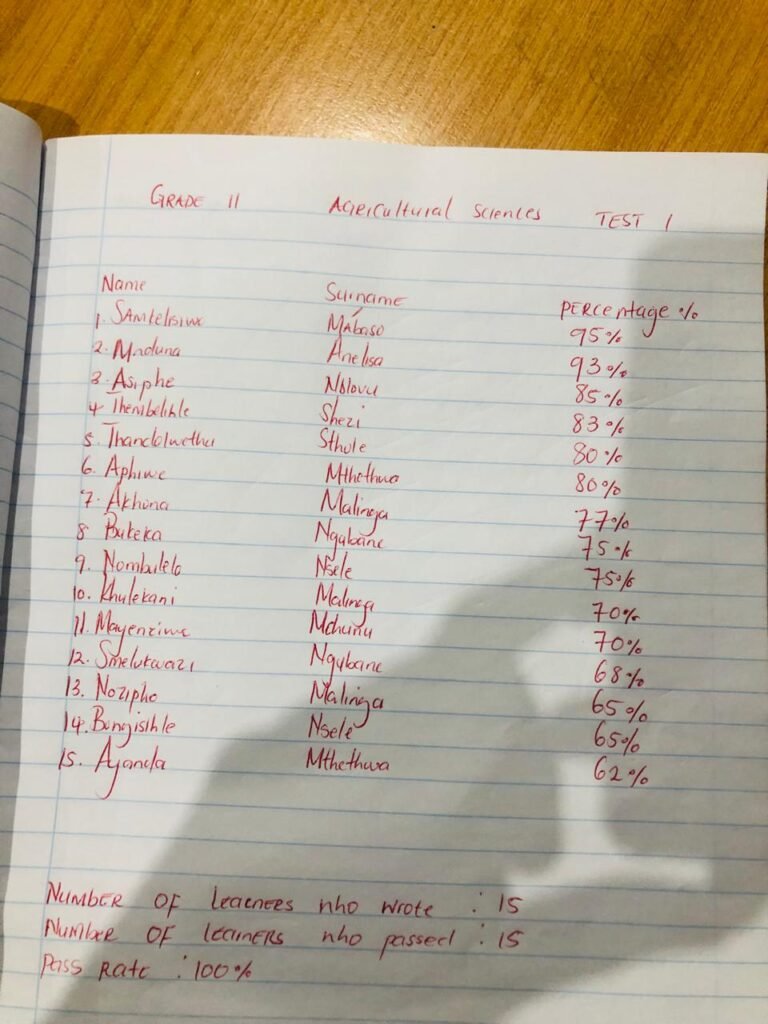 GRADE 11 Agricultural Sciences TEST 1
Name Surname PERCEntage %
1. Samkelisiwe Mabaso 95%
2. Maduna Anelisa 93%
3. Asiphe Ndlovu 85%
4 Thembelihle Shezi 83%
5. Thandolwethu Sthole 80%
6. Aphiwe Mthethwa 80%
7. Akhona Malinga 77%
8 Buteka Ngubane 75%
9. Nombulelo Nsele 75%
10. Khulekani Malinga 70%
11. Mayenziwe Mchunu 70%
12. Smelukwazi Ngubane 68%
13. Nozipho Malinga 65%
14. Bongisihle Nsele 65%
15. Ayanda Mthethwa 62%
NUMBER OF learners who wrote : 15
NUMBER OF learners who passed : 15
Pass Rate : 100%